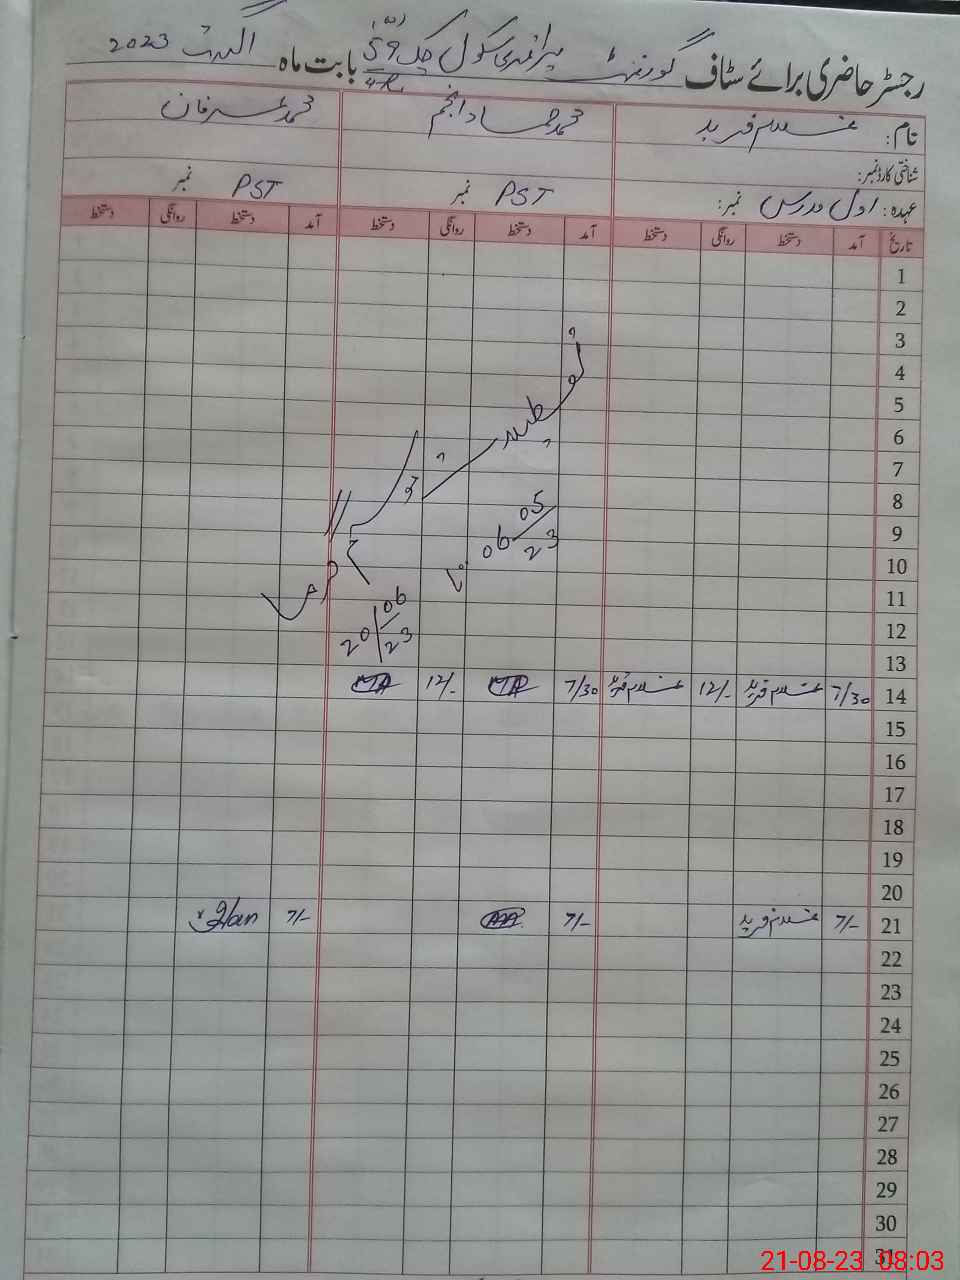 رجسٹر حاضری برائے سٹاف گورنمنٹ پرائمری سکول چک 59 بابت ماہ اگست 2023
4-R
نام: غلام فرید محمد حماد انجم محمد عرفان
شناختی کارڈ نمبر:
عہدہ: اول مدرس نمبر: PST نمبر PST نمبر
تاریخ آمد دستخط روانگی دستخط آمد دستخط روانگی دستخط آمد دستخط روانگی دستخط
1
2
3
4
5
6
7
8
9
10
11
12
13
14 7/30 غلام فرید 12/- غلام فرید 7/30 12/-
15
16
17
18
19
20
21 7/- غلام فرید 7/- 7/-
22
23
24
25
26
27
28
29
30
31
06 05 23
20 06 23
21-08-23 08:03